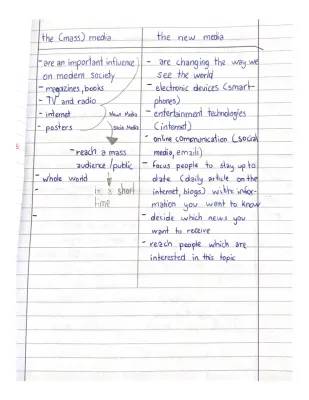 the (mass) media
- are an important influence
on modern society
- magazines, books
- TV and radio
- internet
- posters
News Media
Social Media
- reach a mass
audience / public
- whole world
in a short
time
the new media
- are changing the way we
see the world
- electronic devices (smart-
phones)
- entertainment technologies
(internet)
- online communication (social
media, emails)
- focus people to stay up to
date (daily article on the
internet, blogs) with infor-
mation you want to know
- decide which news you
want to receive
- reach people which are
interested in this topic